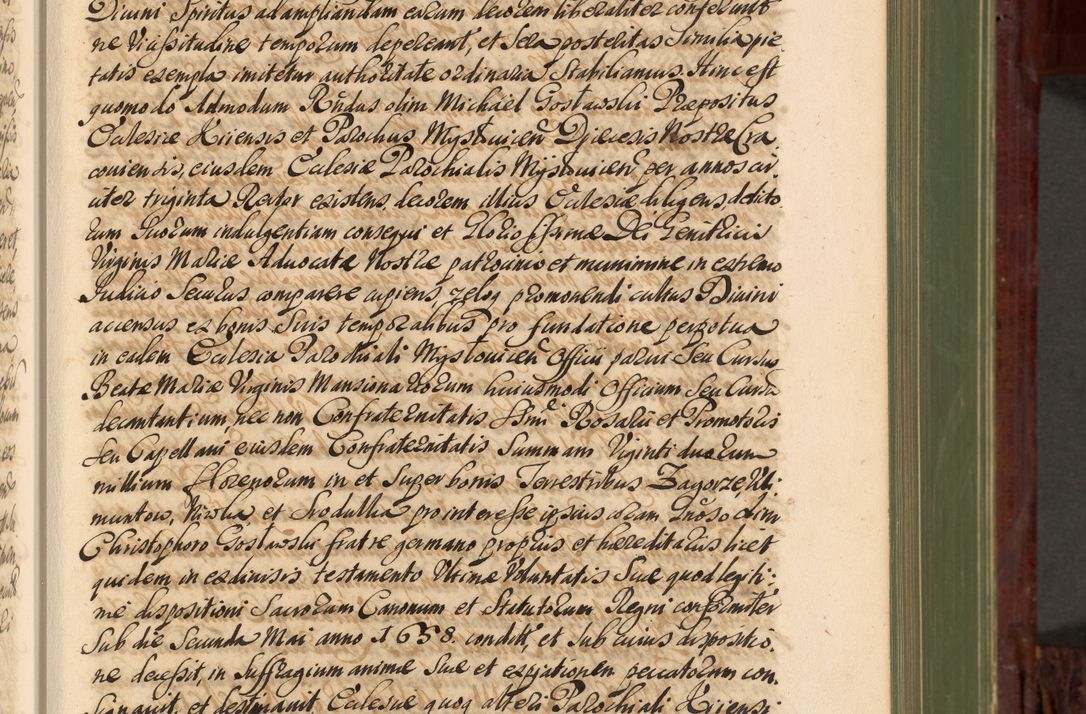 Divini Spiritus ad ampliandam earum decorem liberaliter conferunt
ne Vicissitudine temporum depereant, et Sera posteritas Similia pie-
tatis exempla imitetur authoritate ordinaria Stabiliamus. Hinc est
quomodo Admodum Rndus olim Michael Gostawski Præpositus
Ecclesiæ Xiiensis et Parochus Mysłovicen Diæcesis Nostræ Cra
coviensis, eiusdem Ecclesiæ Parochialis Mysłovicen per annos cir-
citer triginta Rector existens, decorem illius Ecclesiæ diligens, delicto
rum Suorum indulgentiam consequi et Gloriosissimæ Dei Genitricis
Virginis Mariæ Advocatæ Nostræ patrocinio et munimine in extremo
Iudicio Securus comparere cupiens, zeloq promovendi cultus Divini
accensus ex bonis Suis temporalibus pro fundatione perpetua
in eadem Ecclesia Parochiali Mysłovicen Officii parvi Seu Cursus
Beatæ Mariæ Virginis Mansionariorum huiusmodi Officium Seu Cursu
decantantium, nec non Confraternitatis Ssmi Rosarii et Promotoris
seu Capellani eiusdem Confraternitatis Summam Viginti duorum
millium Florenorum in et Super bonis Terrestribus Zagorze, Kli-
muntow, et Srodulka pro interesse ipsius coram Gnoso olim
Christophoro Gostawski fratre germano proprius et hæreditarius licet
quidem in ex divisis testamento Ultimæ Voluntatis Suæ quod legiti-
me dispositioni Sacrorum Canonum et Statutorum Regni conformiter
Sub die Secunda Mai anno 1658. condit, et Sub cuius dispositio-
ne decessit, in Suffragium animæ Suæ et expiationem peccatorum con-
signavit, et destinavit Ecclesiæ quoq alteri Parochiali Xiiensi